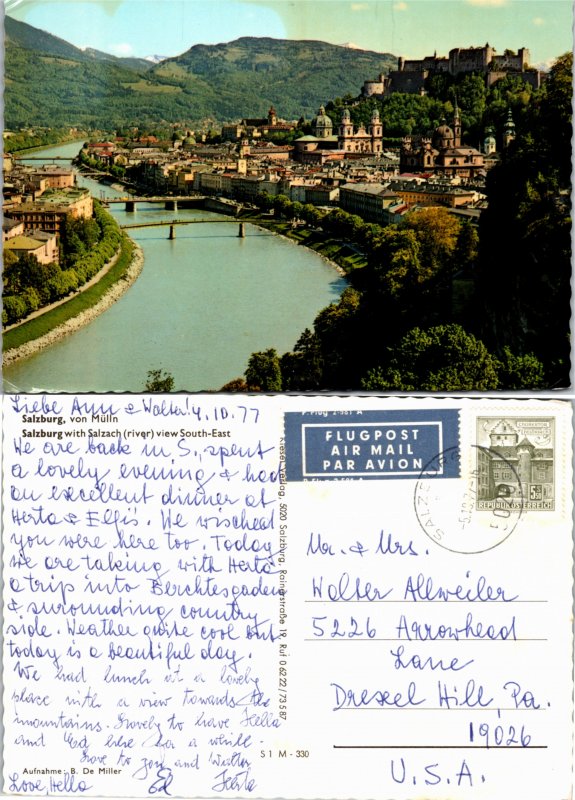 Liebe Ann & Walter! 4.10.77
Salzburg, von Mülln
Salzburg with Salzach (river) view South-East
We are back in S., spent
a lovely evening & had
an excellent dinner at
Herta & Ellfi's. We wisched
you were here too. Today
we are taking with Herta
a trip into Berchtesgaden
& surounding country
side. Weather quite cool but
today is a beautiful day.
We had lunch at a lovely
place with a view towards the
mountains. Lovely to have Hella
and Ed here for a while.
Love to you and Walter
Ed Herta
Aufnahme: B. De Miller
Love, Hella
S 1 M - 330
Kiesel Verlag, 5020 Salzburg, Rainerstraße 19, Ruf 0 62 22 / 73 5 87
P. Flug 2-981 A
FLUGPOST
AIR MAIL
PAR AVION
SALZBURG
5020
REPUBLIK ÖSTERREICH
Mr. & Mrs.
Walter Allweiler
5226 Arrowhead
Lane
Drexel Hill, Pa.
19026
U.S.A.